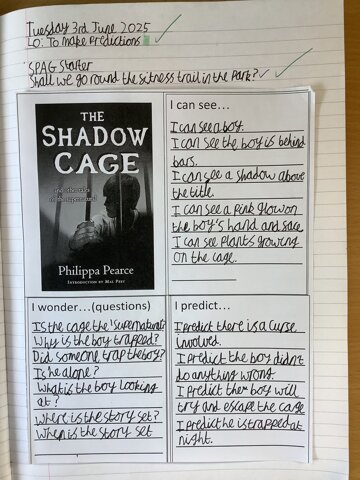 Tuesday 3rd June 2025
LO. To make predictions
SPAG Starter
Shall we go round the sitness trail in the Park?
THE
SHADOW
CAGE
and other tales
of the supernatural
Philippa Pearce
INTRODUCTION BY MAL PEET
I can see...
I can see a boy.
I can see the boy is behind
bars.
I can see a shadow above
the title.
I can see a pink glow on
the boy's hand and face
I can see plants growing
on the cage.
I wonder...(questions)
Is the cage the 'supernatural'?
Why is the boy trapped?
Did someone trap the boy?
Is he alone?
What is the boy looking
at?
Where is the story set?
When is the story set
I predict...
I predict there is a curse
involved.
I predict the boy didn't
do anything wrong.
I predict the boy will
try and escape the cage
I predict he is trapped at
night.